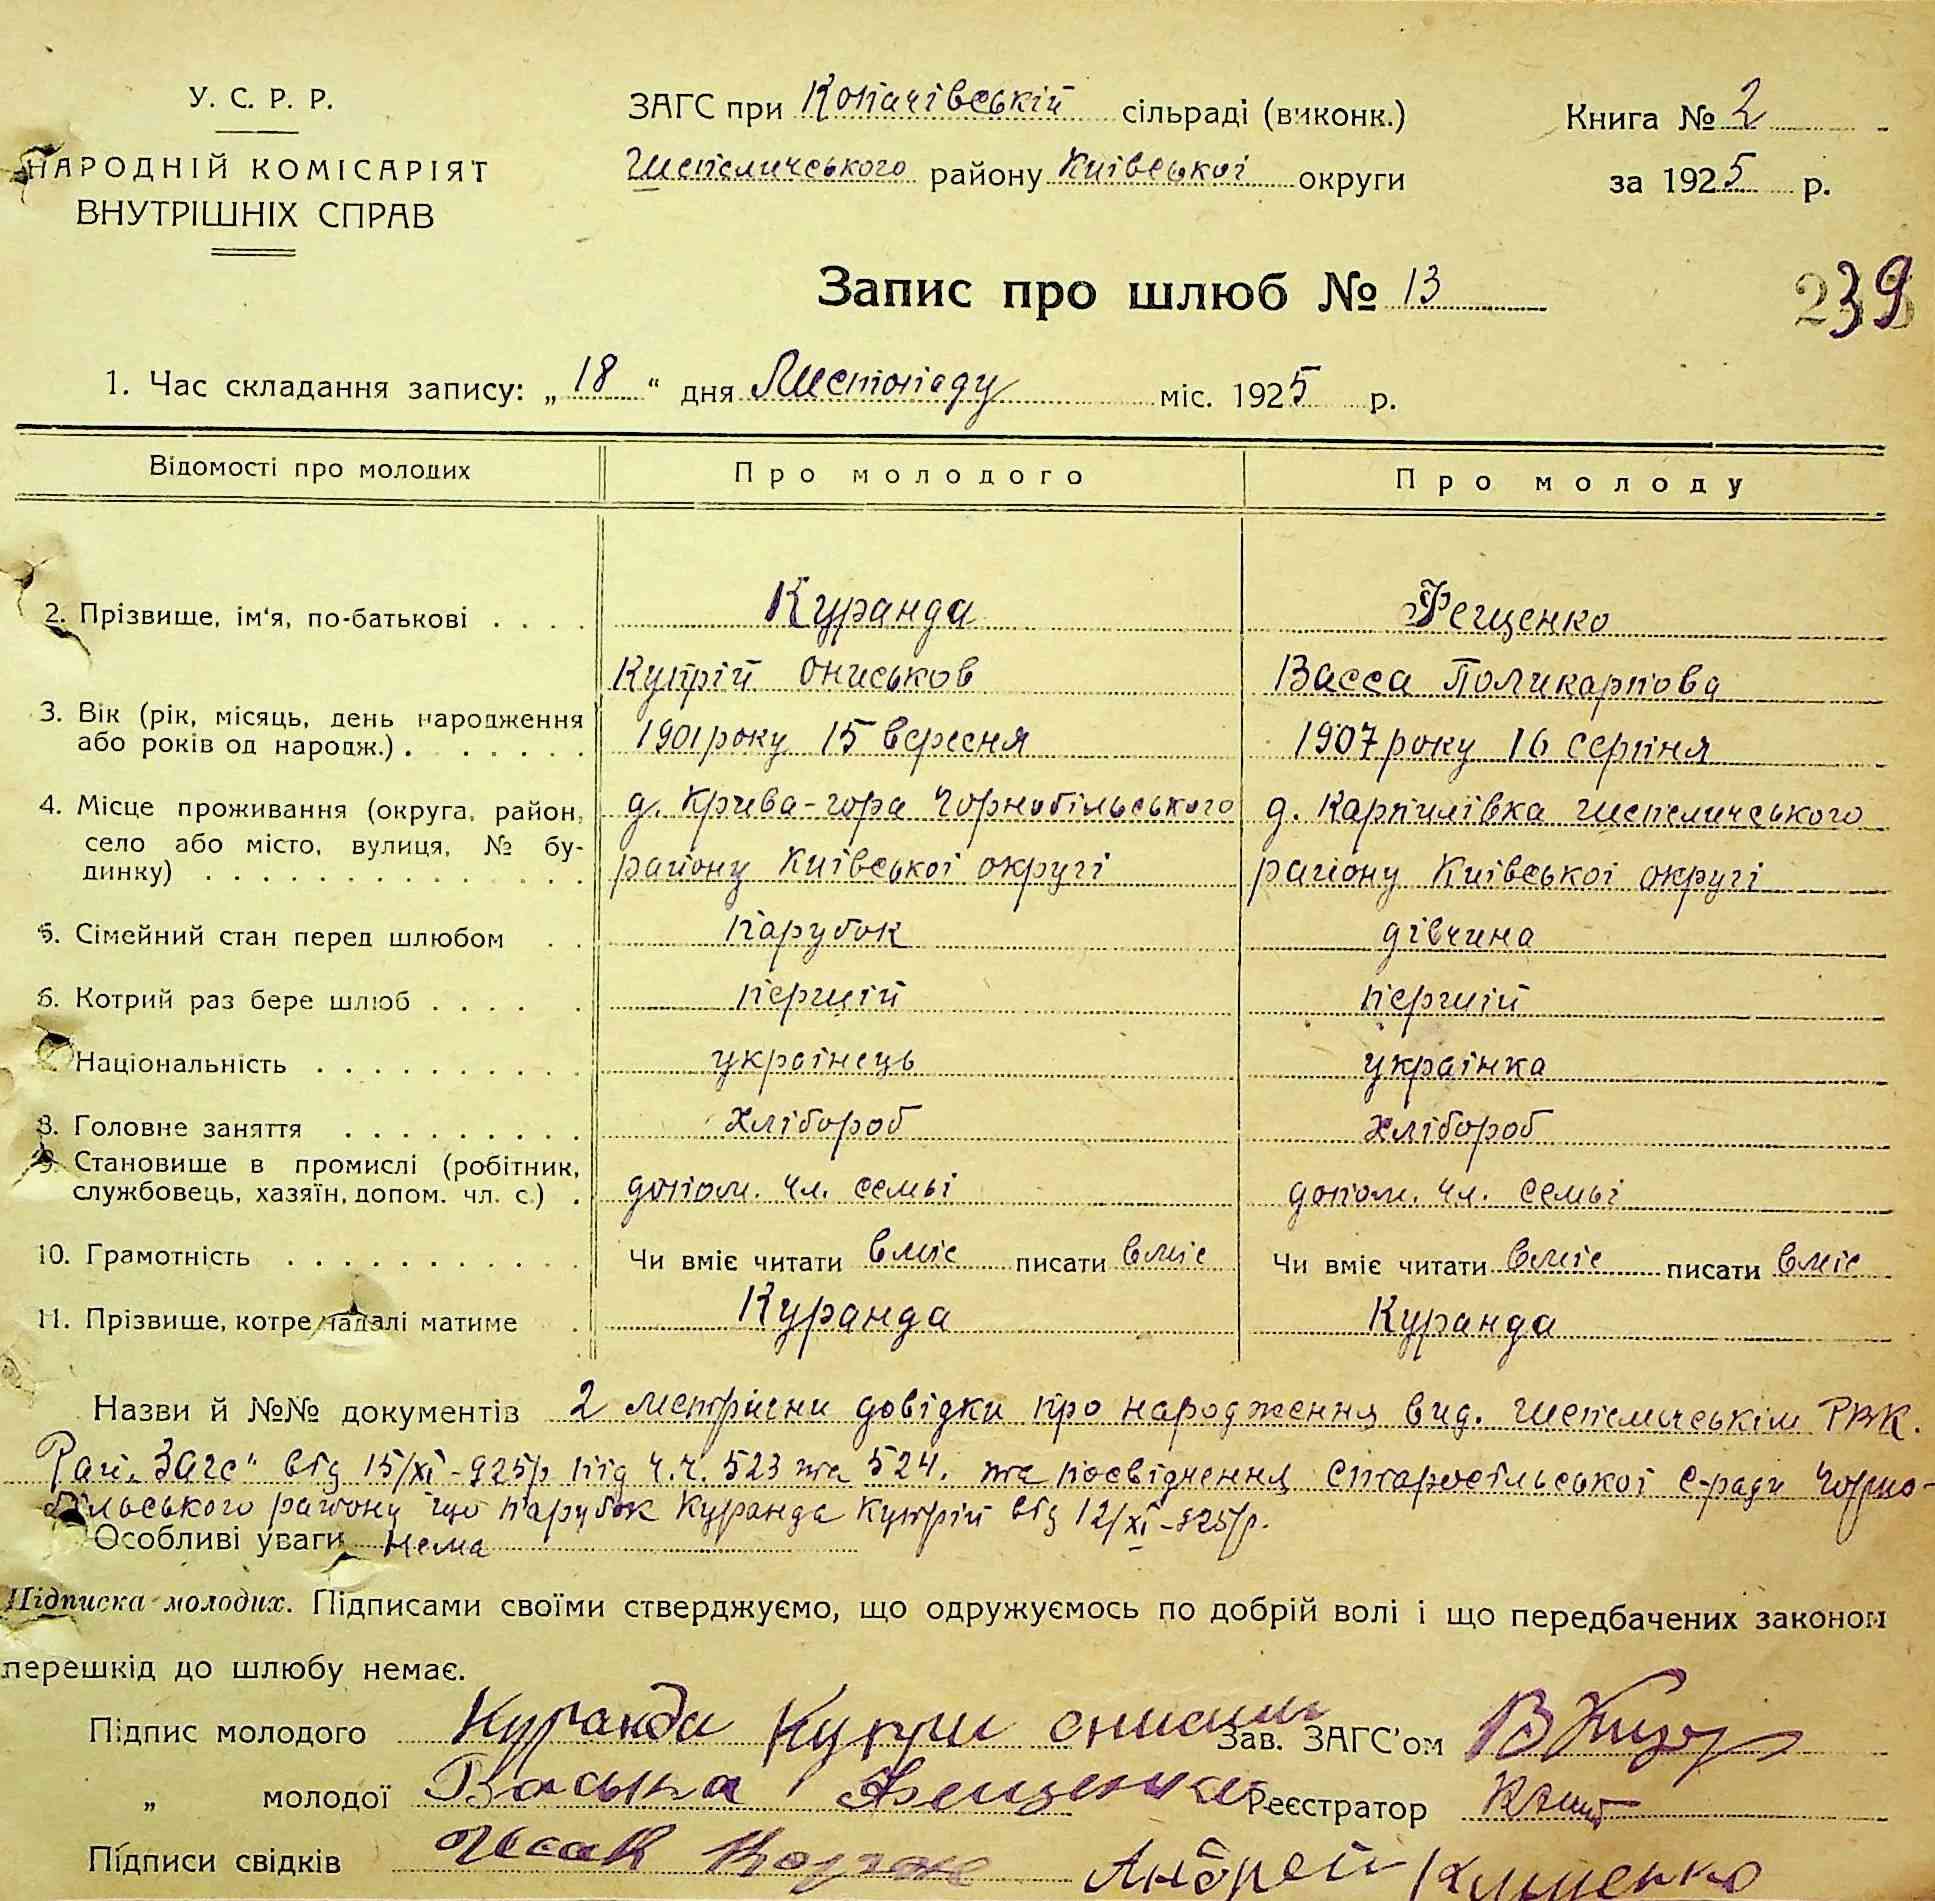 У. С. Р. Р.
НАРОДНІЙ КОМІСАРІЯТ
ВНУТРІШНІХ СПРАВ
ЗАГС при Копачівській сільраді (виконк.)
Шепеличського району Київської округи
Книга № 2
за 1925 р.
Запис про шлюб № 13
239
1. Час складання запису: „18“ дня Листопаду міс. 1925 р.
Відомості про молодих Про молодого Про молоду
2. Прізвище, ім'я, по-батькові . . . . Куранда Фещенко
Купрій Ониськов Васса Поликарпова
3. Вік (рік, місяць, день народження
або років од народж.) . . . . . . 1901 року 15 вересня 1907 року 16 серпня
4. Місце проживання (округа, район, д. Крива-гора Чорнобільського д. Карпилівка Шепеличського
село або місто, вулиця, № бу-
динку) . . . . . . . . . . . . . . району Київської округі району Київської округі
5. Сімейний стан перед шлюбом . . парубок дівчина
6. Котрий раз бере шлюб . . . . . перший перший
Національність . . . . . . . . . . українець українка
8. Головне заняття . . . . . . . . . хлібороб хлібороб
9. Становище в промислі (робітник,
службовець, хазяїн, допом. чл. с.) . допом. чл. семьі допом. чл. семьі
10. Грамотність . . . . . . . . . . . Чи вміє читати вміє писати вміє Чи вміє читати вміє писати вміє
11. Прізвище, котре надалі матиме . Куранда Куранда
Назви й №№ документів 2 метрични довідки про народження вид. Шепеличськім РВК.
Рай. Загс" від 15/XI-925р. під ч.ч. 523 та 524. та посвідчення Старосільської с-ради Чорно-
більського району що парубок Куранда Купрій від 12/XI-925р.
Особливі уваги нема
Підписка молодих. Підписами своїми стверджуємо, що одружуємось по добрій волі і що передбачених законом
перешкід до шлюбу немає.
Підпис молодого Куранда Купри Зав. ЗАГС'ом
„ молодої Васька Фещенко Реєстратор
Підписи свідків Исак Андрей